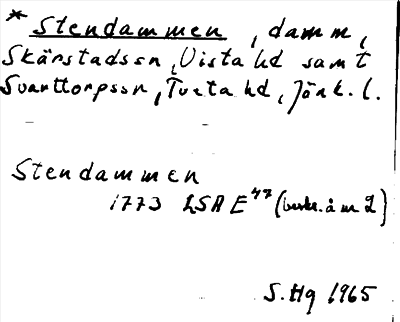 * Stendammen, damm,
Skärstadssn, Vista hd samt
Svarttorpssn, Tveta hd, Jönk. l.
Stendammen
1773 LSA E 47 (
S. Hg 1965